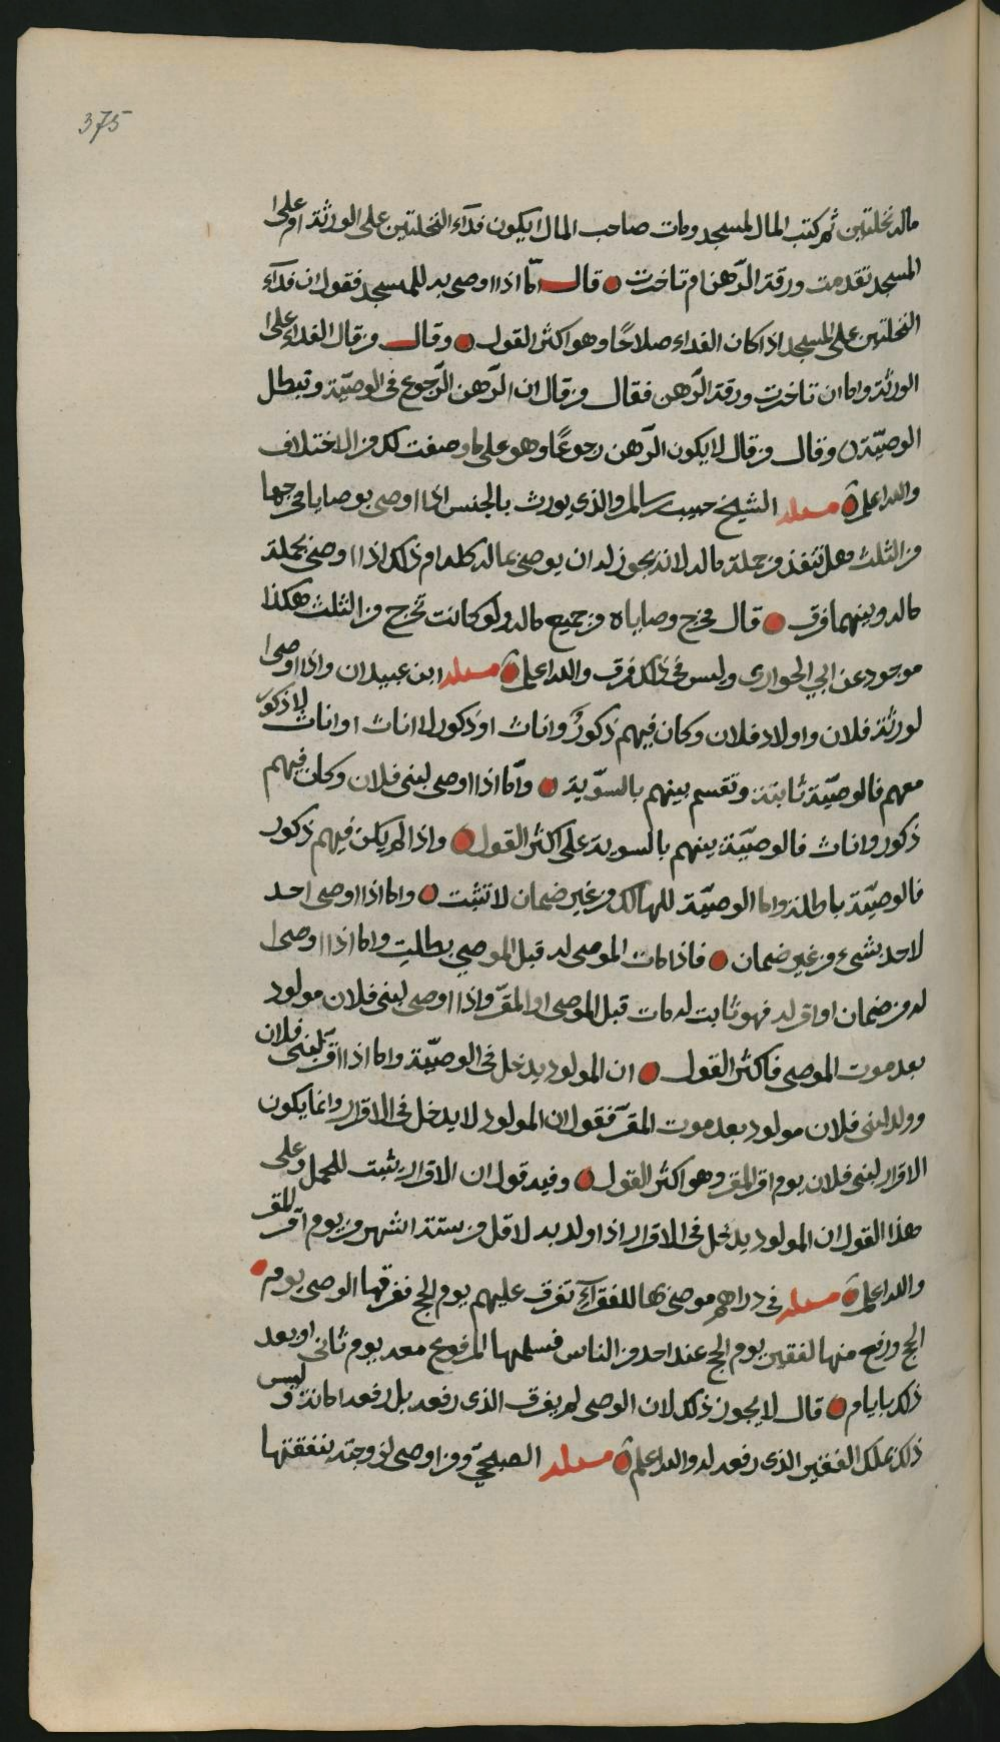 375
ماله نخلتين ثم كتب المال لمسجد ومات صاحب المال ايكون فدآء النخلتين على الورثة او على
المسجد تقدمت ورقة الرّهن ام تاخرت قال امّا اذا اوصى به للمسجد فقول ان فدآء
النخلتين على المسجد اذا كان الفداء صلاحًا وهو اكثر القول وقال من قال الفداء على
الورثة واما ان تاخرت ورقة الرّهن فقال من قال ان الرّهن الرّجوع فى الوصيّة وتبطل
الوصيّة وقال من قال لا يكون الرّهن رجوعًا وهو على ما وصفت لك من الاختلاف
والله اعلم مسئله الشيخ حبيب بن سالم والذي يورث بالجنس اذا اوصى بوصايا مخرجها
من الثلث هل تنفذ من جملة ماله لانه يجوز له ان يوصى بماله كله ام ذلك اذا اوصى بجملة
ماله وبينهما فرق قال مخرج وصاياه من جميع ماله ولو كانت تخرج من الثلث هكذا
موجود عن ابي الحوارى وليس فى ذلك فرق والله اعلم مسئله ابن عبيدان واذا اوصى
لورثة فلان واولاد فلان وكان فيهم ذكورٌ واناث او ذكور لا اناث او اناث لا ذكور
معهم فالوصيّة ثابتة وتقسم بينهم بالسّوية وامّا اذا اوصى لبنى فلان وكان فيهم
ذكور واناث فالوصيّة بينهم بالسوية على اكثر القول واذا لم يكن فيهم ذكور
فالوصيّة باطلة واما الوصيّة للهالك من غير ضمان لا تثبت واما اذا اوصى احد
لاحد بشىء من غير ضمان فاذا مات الموصى له قبل الموصي بطلت واما اذا اوصى
له من ضمان او اقر له فهو ثابت له مات قبل الموصى او المقرّ واذا اوصى لبنى فلان مولود
بعد موت الموصى فاكثر القول ان المولود يدخل فى الوصيّة واما اذا اقرّ لبنى فلان
وولد لبنى فلان مولود بعد موت المقرّ فقول ان المولود لا يدخل فى الاقرار وانما يكون
الاقرار لبنى فلان يوم اقر المقر وهو اكثر القول وفيه قول ان الاقرار يثبت للحمل وعلى
هذا القول ان المولود يدخل فى الاقرار اذا ولد به لاقل من ستة اشهر من يوم اقر المقر
والله اعلم مسئله فى دراهم موصى بها للفقرآء تفرق عليهم يوم الحج ففرقها الوصى يوم
الحج ورفع منها لفقير يوم الحج عند احد من الناس فسلمها المرفوع معه يوم ثانى او بعد
ذلك بايام قال لا يجوز ذلك لان الوصى لم يفرق الذى رفعه بل رفعه امانة وليس
ذلك بملك الفقير الذى رفعه له والله اعلم مسئله الصبحيّ ومن اوصى لزوجته بنفقتها